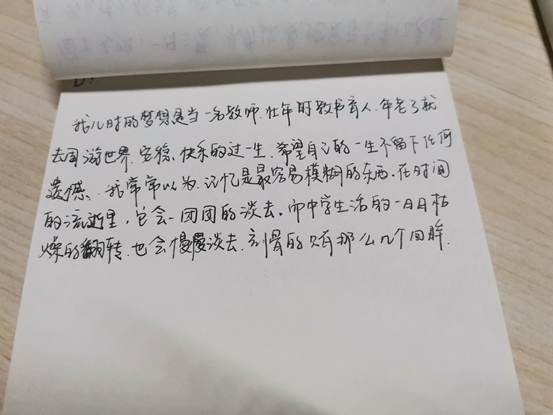 我儿时的梦想是当一名教师,壮年时教书育人,年老了就
去周游世界,安稳、快乐的过一生,希望自己的一生不留下任何
遗憾。我常常以为,记忆是最容易模糊的东西,在时间
的流逝里,它会一团团的淡去,而中学生活的一日日枯
燥的翻转,也会慢慢淡去,亥惜的只有那么几个回眸.